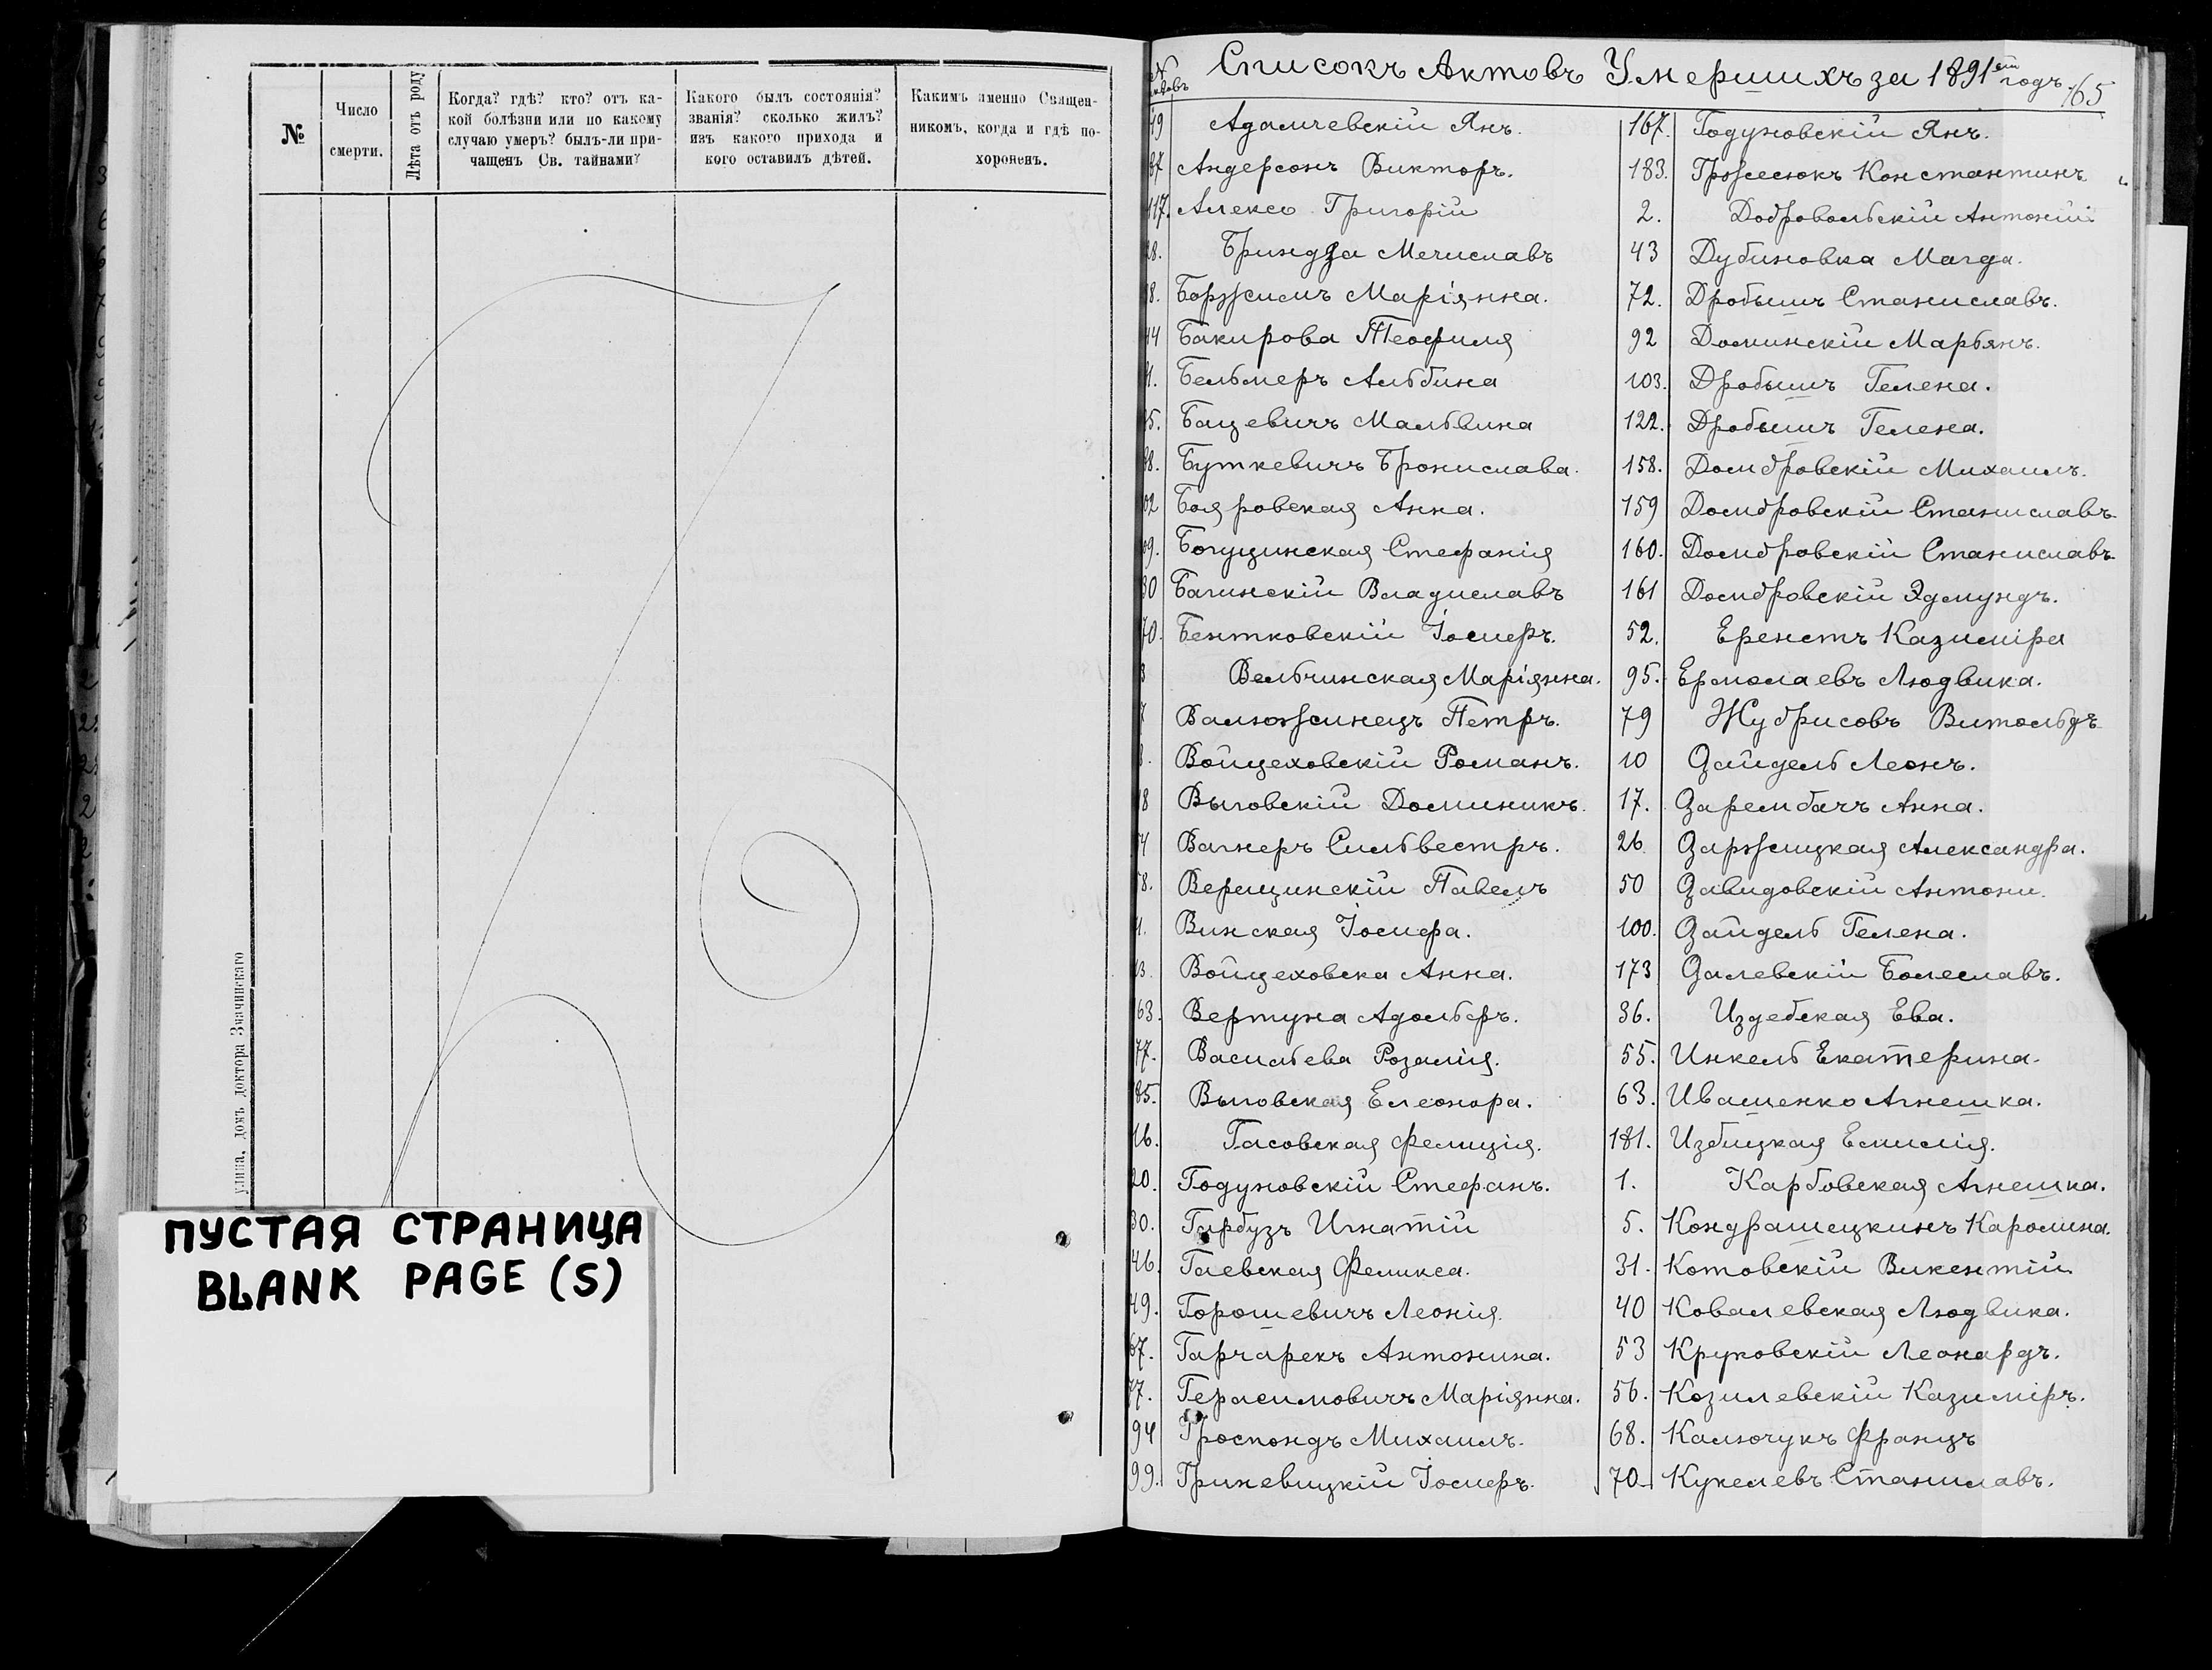 №
Число смерти.
Лѣта отъ роду
Когда? гдѣ? кто? отъ ка-
кой болѣзни или по какому
случаю умеръ? былъ-ли при-
чащенъ Св. тайнами?
Какого былъ состоянія?
званія? сколько жилъ?
изъ какого прихода и
кого оставилъ дѣтей.
Какимъ именно Священ-
никомъ, когда и гдѣ по-
хороненъ.
улица, домъ доктора Значинскаго
ПУСТАЯ СТРАНИЦА
BLANK PAGE (S)
Списокъ Актовъ Умершихъ за 1891 годъ
165
Адамчевскій Янъ.
Андерсонъ Викторъ.
117. Алексо Григорій
Бриндза Мечиславъ
Боржимъ Маріянна.
Бакирова Теофиля
Бельмеръ Альбина
Бацевичъ Мальвина
Буткевичъ Бронислава.
Бояровская Анна.
Богуцинская Стефанія
Багинскій Владиславъ
Бентковскій Іосифъ.
Вельчинская Маріянна.
Валюжинецъ Петръ.
Войцеховскій Романъ.
Выговскій Доминикъ.
Вагнеръ Сильвестръ.
Верещинскій Павелъ
Винская Іосифа.
Войцеховска Анна.
63. Вертуна Адольфъ.
77. Васильева Розалія.
85. Выговская Елеонора.
16. Гасовская Фелиція.
20. Годуновскій Стефанъ.
30. Гарбузъ Игнатій
46. Гаевская Феликса.
49. Горошевичъ Леонія.
67. Гарчарекъ Антонина.
77. Герасимовичъ Маріянна.
94 Гроспондъ Михаилъ.
99. Гриневицкій Іосифъ.
167. Годуновскій Янъ.
183. Гржесюкъ Константинъ
2. Добровольскій Антоній
43 Дубиновка Магда.
72. Дробышъ Станиславъ.
92 Доминскій Марьянъ.
103. Дробышъ Гелена.
122. Дробышъ Гелена.
158. Домбровскій Михаилъ.
159 Домбровскій Станиславъ
160. Домбровскій Станиславъ
161 Домбровскій Эдмундъ.
52. Еренстъ Казиміра
95. Ермолаевъ Людвика.
79 Жубрисовъ Витольдъ
10 Зайдель Леонъ.
17. Зарембачъ Анна.
26 Заржицкая Александра.
50 Завидовскій Антони.
100. Зайдель Гелена.
173 Залевскій Болеславъ.
36. Издебская Ева.
55. Инкель Екатерина.
63. Иващенко Агнешка.
181. Избицкая Емилія.
1. Карбовская Агнешка.
5. Кондрашецкинъ Каролина.
31. Котовскій Викентій
40 Ковалевская Людвика.
53 Круковскій Леонардъ.
56. Козилевскій Казиміръ.
68. Калючукъ Францъ
70. Кукелевъ Станиславъ.